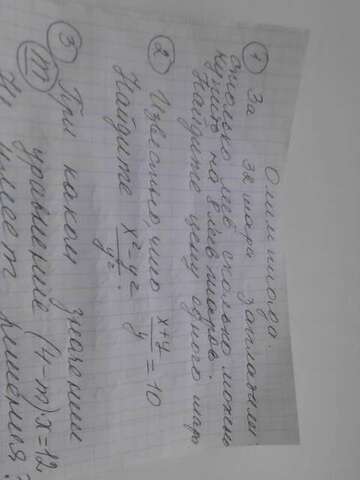 Олимпиада.
① За 32 шара заплатили
столько лев сколько можно
купить на 8 лев шаров.
Найдите цену одного шара
② Известно, что x+y/y = 10
Найдите x²-y²/y².
③ При каком значении
ⓜ уравнение (4-m)x=12
Не имеет решения?